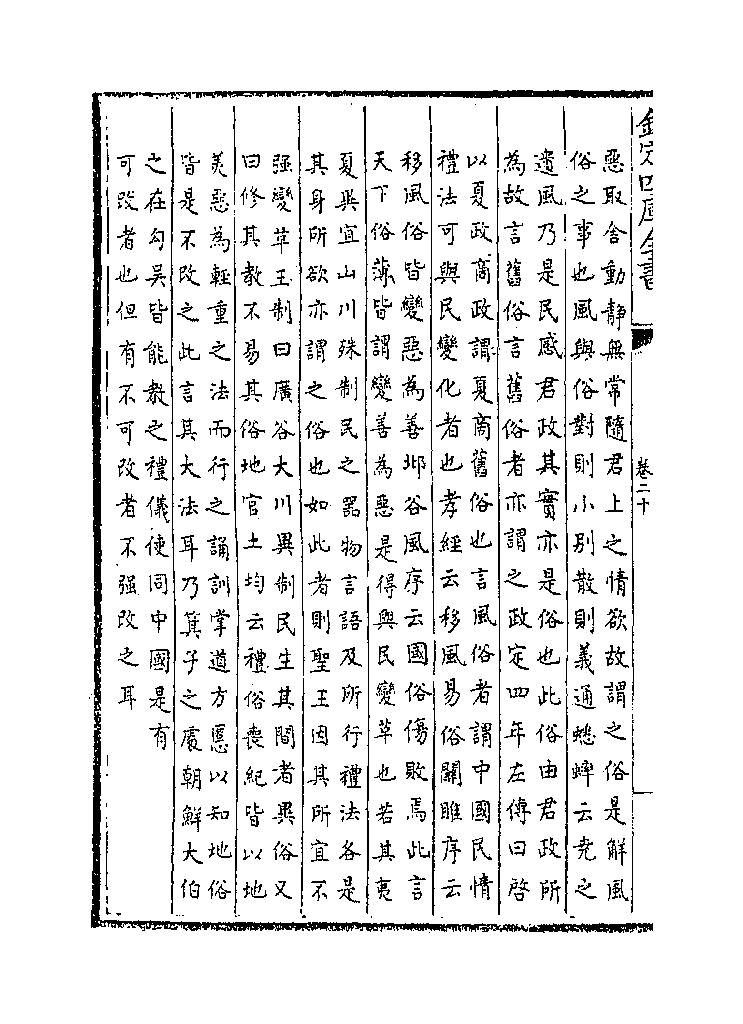 欽定四庫全書
卷二十
惡取舍動靜無常隨君上之情欲故謂之俗是解風
俗之事也風與俗對則小别散則義通蟋蟀云堯之
遺風乃是民感君政其實亦是俗也此俗由君政所
為故言舊俗言舊俗者亦謂之政定四年左傳曰啓
以夏政商政謂夏商舊俗也言風俗者謂中國民情
禮法可與民變化者也孝經云移風易俗關雎序云
移風俗皆變惡為善邶谷風序云國俗傷敗焉此言
天下俗薄皆謂變善為惡是得與民變革也若其夷
夏異宜山川殊制民之器物言語及所行禮法各是
其身所欲亦謂之俗也如此者則聖王因其所宜不
强變革王制曰廣谷大川異制民生其間者異俗又
曰修其教不易其俗地官土均云禮俗喪紀皆以地
美惡為輕重之法而行之誦訓掌道方慝以知地俗
皆是不改之此言其大法耳乃箕子之處朝鮮大伯
之在勾吳皆能教之禮儀使同中國是有
可改者也但有不可改者不强改之耳